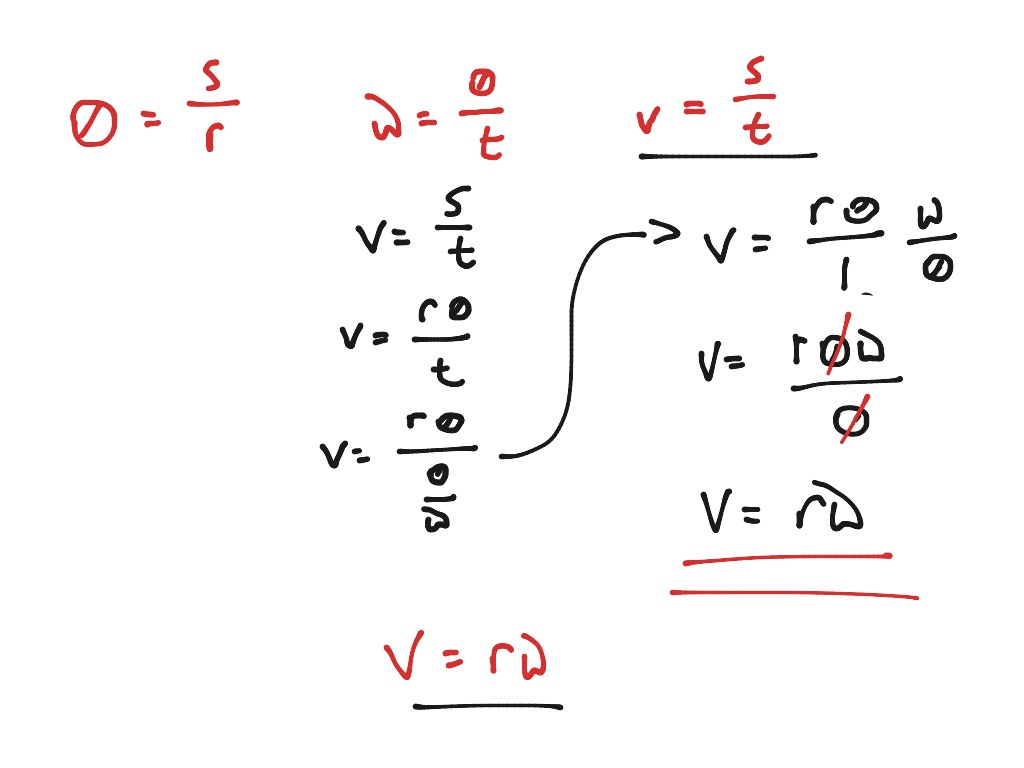 θ = s/r
ω = θ/t
v = s/t
v = s/t
v = rθ/t
v = rθ/(θ/ω)
v = rθ/1 ω/θ
v = rθω/θ
v = rω
v = rω